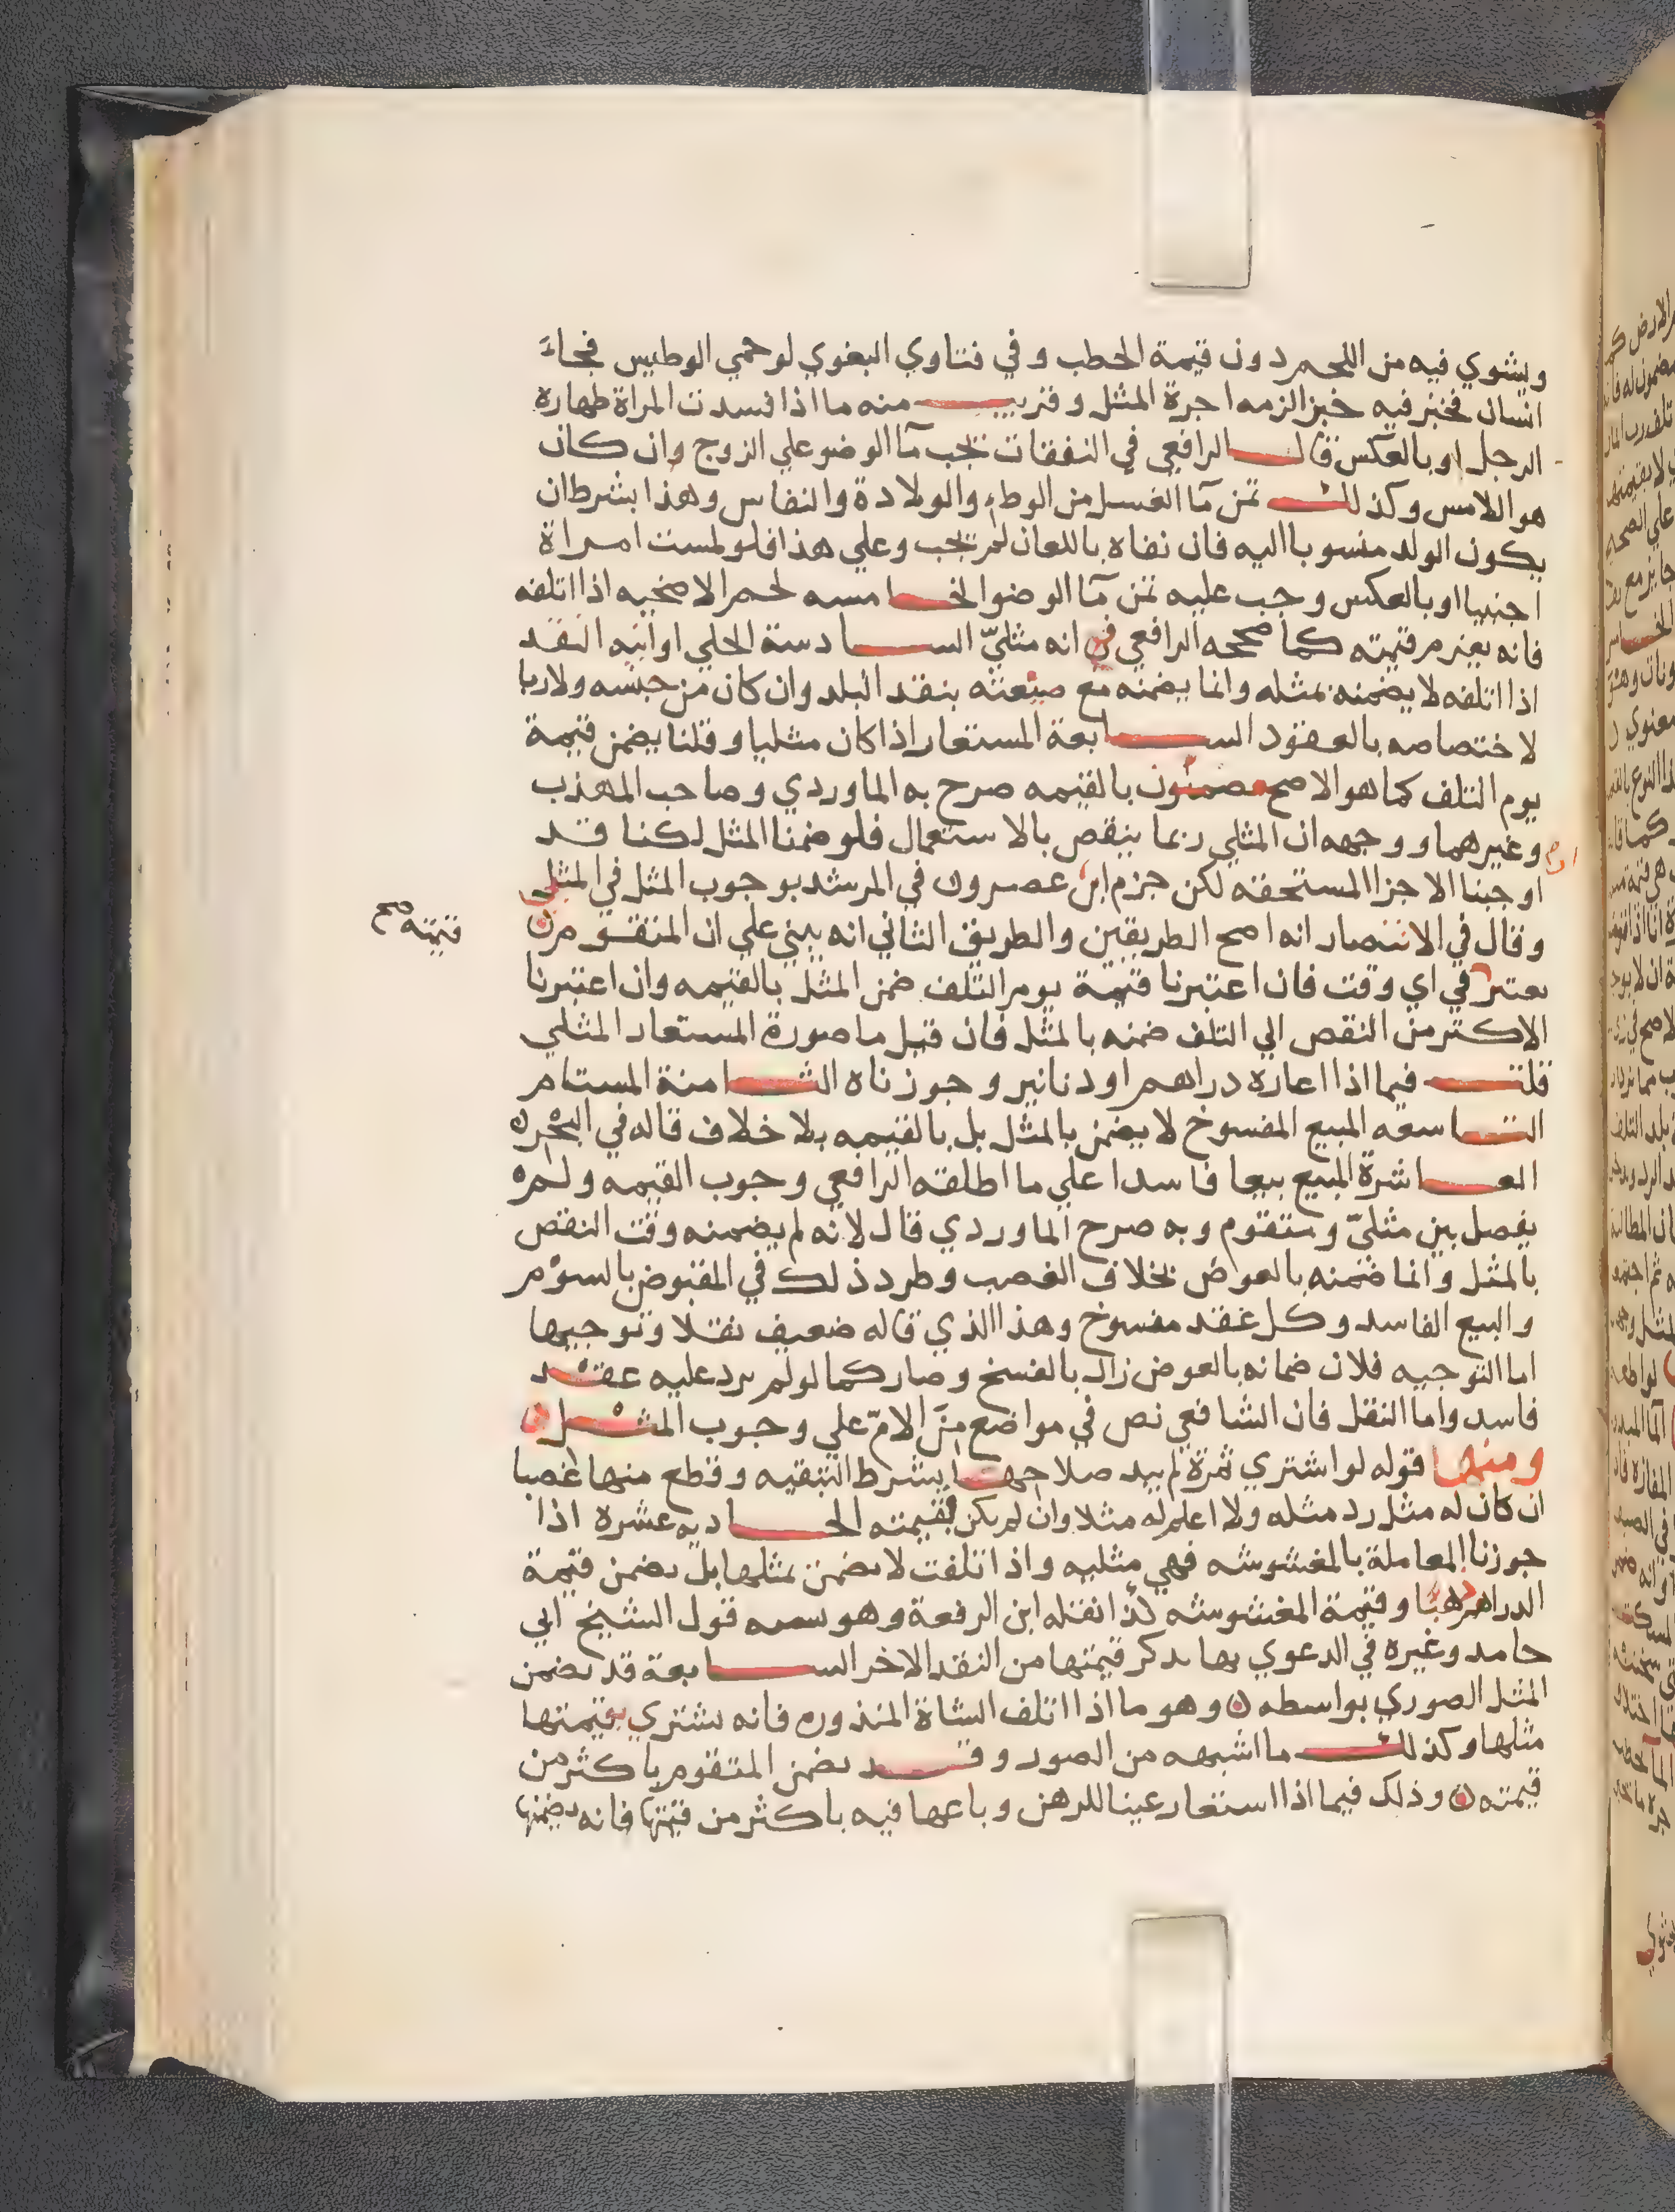 ويشوي فيه من اللحم دون قيمة الحطب وفي فتاوي البغوي لو حمي الوطيس فجاء
انسان فخبز فيه خبزا لزمه اجرة المثل وقريب منه ما اذا افسدت المراة طهارة
الرجل او بالعكس قال الرافعي في النفقات تجب مآ الوضو علي الزوج وان كان
هو اللامس وكذلك ثمن مآ الغسل من الوطء والولادة والنفاس وهذا بشرط ان
يكون الولد منسوبا اليه فان نفاه باللعان لم تجب وعلي هذا فلو لمست امراة
اجنبيا او بالعكس وجب عليه ثمن مآ الوضو الخامسه لحم الاضحيه اذا اتلفه
فانه يغرم قيمته كما صححه الرافعي انه مثليّ السادسة الحلي او انيه النقد
اذا اتلفه لا يضمنه بمثله وانما يضمنه مع صنعته بنقد البلد وان كان من جنسه ولا ربا
لاختصاصه بالعقود السابعة المستعار اذا كان مثليا وقلنا يضمن قيمة
يوم التلف كما هو الاصح مضمون بالقيمه صرح به الماوردي وصاحب المهذب
وغيرهما ووجهه ان المثلي ربما ينقص بالاستعمال فلو ضمنا المثل لكنا قد
اوجبنا الاجزا المستحقة لكن جزم ابن عصرون في المرشد بوجوب المثل في المثلي
وقال في الانتصار انه اصح الطريقين والطريق الثاني انه يبني علي ان المتقوم
قيمته صح
يعتبر في اي وقت فان اعتبرنا قيمة يوم التلف ضمن المثل بالقيمه وان اعتبرنا
الاكثر من النقص الي التلف ضمنه بالمثل فان قيل ما صورة المستعار المثلي
قلت فيما اذا اعاره دراهم او دنانير وجوزناه الثامنة المستام
التاسعه المبيع المفسوخ لا يضمن بالمثل بل بالقيمه بلا خلاف قاله في البحر
العاشرة المبيع بيعا فاسدا علي ما اطلقه الرافعي وجوب القيمه ولم
يفصل بين مثليّ ومتقوم وبه صرح الماوردي قال لانه لم يضمنه وقت النقص
بالمثل وانما ضمنه بالعوض بخلاف الغصب وطرد ذلك في المقبوض بالسوم
والبيع الفاسد وكل عقد مفسوخ وهذا الذي قاله ضعيف نقلا وتوجيها
اما التوجيه فلان ضمانه بالعوض زال بالفسخ وصار كما لو لم يرد عليه عقد
فاسد واما النقل فان الشافعي نص في مواضع من الامّ علي وجوب المثل
ومنها قوله لو اشتري ثمرة لم يبد صلاحها بشرط التبقيه وقطع منها غصبا
ان كان له مثل رد مثله ولا اعلم له مثلا وان لم يكن فقيمته الحاديه عشره اذا
جوزنا المعاملة بالمغشوشه فهي مثليه واذا تلفت لا يضمن بمثلها بل يضمن قيمة
الدراهم ذهبا وقيمة المغشوشه كذا نقله ابن الرفعة وهو قول الشيخ ابي
حامد وغيره في الدعوي بها يذكر قيمتها من النقد الاخر السابعة قد يضمن
المثل الصوري بواسطه وهو ما اذا اتلف الشاة المنذوره فانه يشتري بقيمتها
مثلها وكذلك ما اشبهه من الصور وقد يضمن المتقوم باكثر من
قيمته وذلك فيما اذا استعار عينا للرهن وباعها فيه باكثر من قيمتها فانه يضمنها